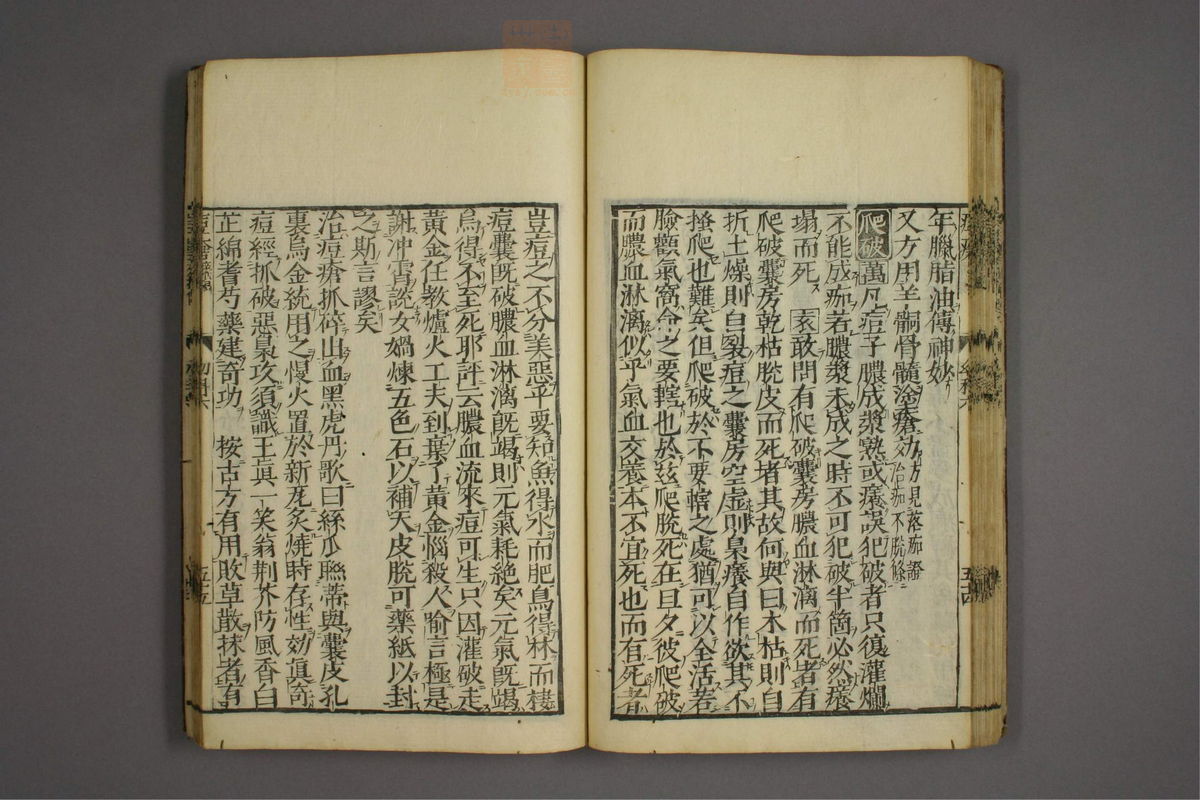 年臘脂油傅神妙
又方用羊䯒骨髓塗瘡効方見落痂證
治痂不脫條
爬破萬凡痘子膿成漿熟或癢誤犯破者只復灌爛
不能成痂若膿漿未成之時不可犯破半箇必然癢
塌而死 玄敢問有爬破囊房膿血淋漓而死者有
爬破囊房乾枯脫皮而死者其故何與曰木枯則自
折土燥則自裂痘之囊房空虛則梟癢自作欲其不
搔爬也難矣但爬破於不要轄之處猶可以全活若
臉顴氣窩命之要轄也於玆爬脫死在旦夕彼爬破
而膿血淋漓似乎氣血交養本不宜死也而有死者
豈痘之不分美惡乎要知魚得水而肥鳥得林而棲
痘囊既破膿血淋漓既竭則元氣耗絶矣元氣既竭
烏得不至死耶評云膿血流來痘可生只因灌破走
黃金任教爐火工夫到棄了黃金惱殺人喻言極是
謝冲霄說女媧煉五色石以補天皮脫可藥紙以封
之斯言謬矣
治痘瘡抓碎出血黑虎丹歌曰絲瓜聮蒂與囊皮孔
裏烏金統用之慢火置於新瓦炙燒時存性効眞奇
痘經抓破惡梟攻須識王眞一笑翁荆芥防風香白
芷綿耆芍藥建奇功 按古方有用敗草散抹者有